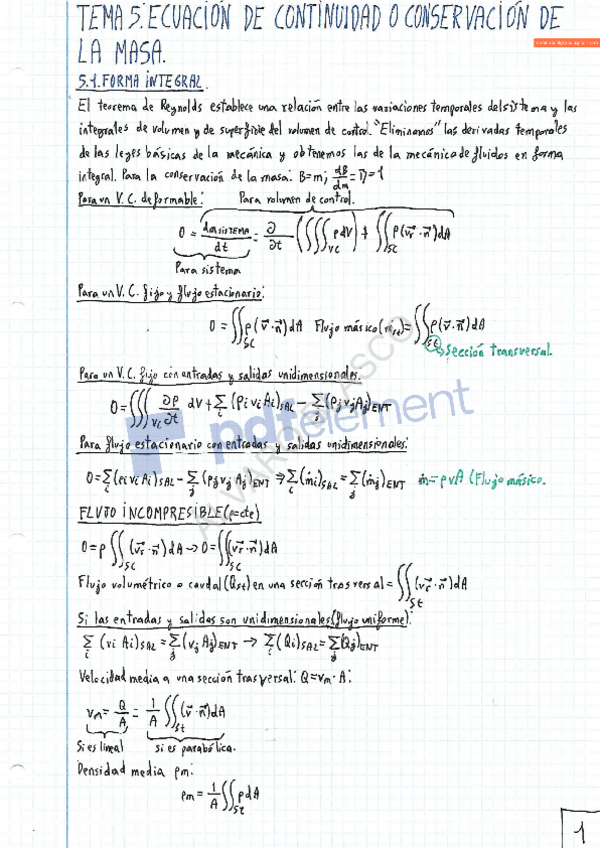 TEMA 5: ECUACIÓN DE CONTINUIDAD O CONSERVACIÓN DE
LA MASA.
5.1. FORMA INTEGRAL.
El teorema de Reynolds establece una relación entre las variaciones temporales del sistema y las
integrales de volumen y de superficie del volumen de control. "Eliminamos" las derivadas temporales
de las leyes básicas de la mecánica y obtenemos las de la mecánica de fluidos en forma
integral. Para la conservación de la masa: B=m; dB/dm = η = 1
Para un V.C. deformable: Para volumen de control.
0 = dm SISTEMA/dt = ∂/∂t (∭_VC ρdV) + ∬_SC ρ(v⃗r·n⃗)dA
Para sistema
Para un V.C. fijo y flujo estacionario:
0 = ∬_SC ρ(v⃗·n⃗)dA Flujo másico (ṁst) = ∬_St ρ(v⃗·n⃗)dA
Sección transversal.
Para un V.C. fijo con entradas y salidas unidimensionales.
0 = ∭_VC ∂ρ/∂t dV + Σi (ρi vi Ai)SAL − Σj (ρj vj Aj)ENT
pdfelement
ALVARO BLASCO
Para flujo estacionario con entradas y salidas unidimensionales:
0 = Σi (ρi vi Ai)SAL − Σj (ρj vj Aj)ENT ⇒ Σi (ṁi)SAL = Σj (ṁj)ENT ṁ = ρvA (Flujo másico.
FLUJO INCOMPRESIBLE (ρ=cte)
0 = ρ ∬_SC (v⃗r·n⃗)dA → 0 = ∬_SC (v⃗r·n⃗)dA
Flujo volumétrico o caudal (Qst) en una sección trasversal = ∬_St (v⃗r·n⃗)dA
Si las entradas y salidas son unidimensionales (flujo uniforme):
Σi (vi Ai)SAL = Σj (vj Aj)ENT → Σi (Qi)SAL = Σj (Qj)ENT
Velocidad media a una sección trasversal: Q = vm·A:
vm = Q/A = 1/A ∬_St (v⃗·n⃗)dA
Si es lineal si es parabólica.
Densidad media ρm:
ρm = 1/A ∬_St ρdA
1